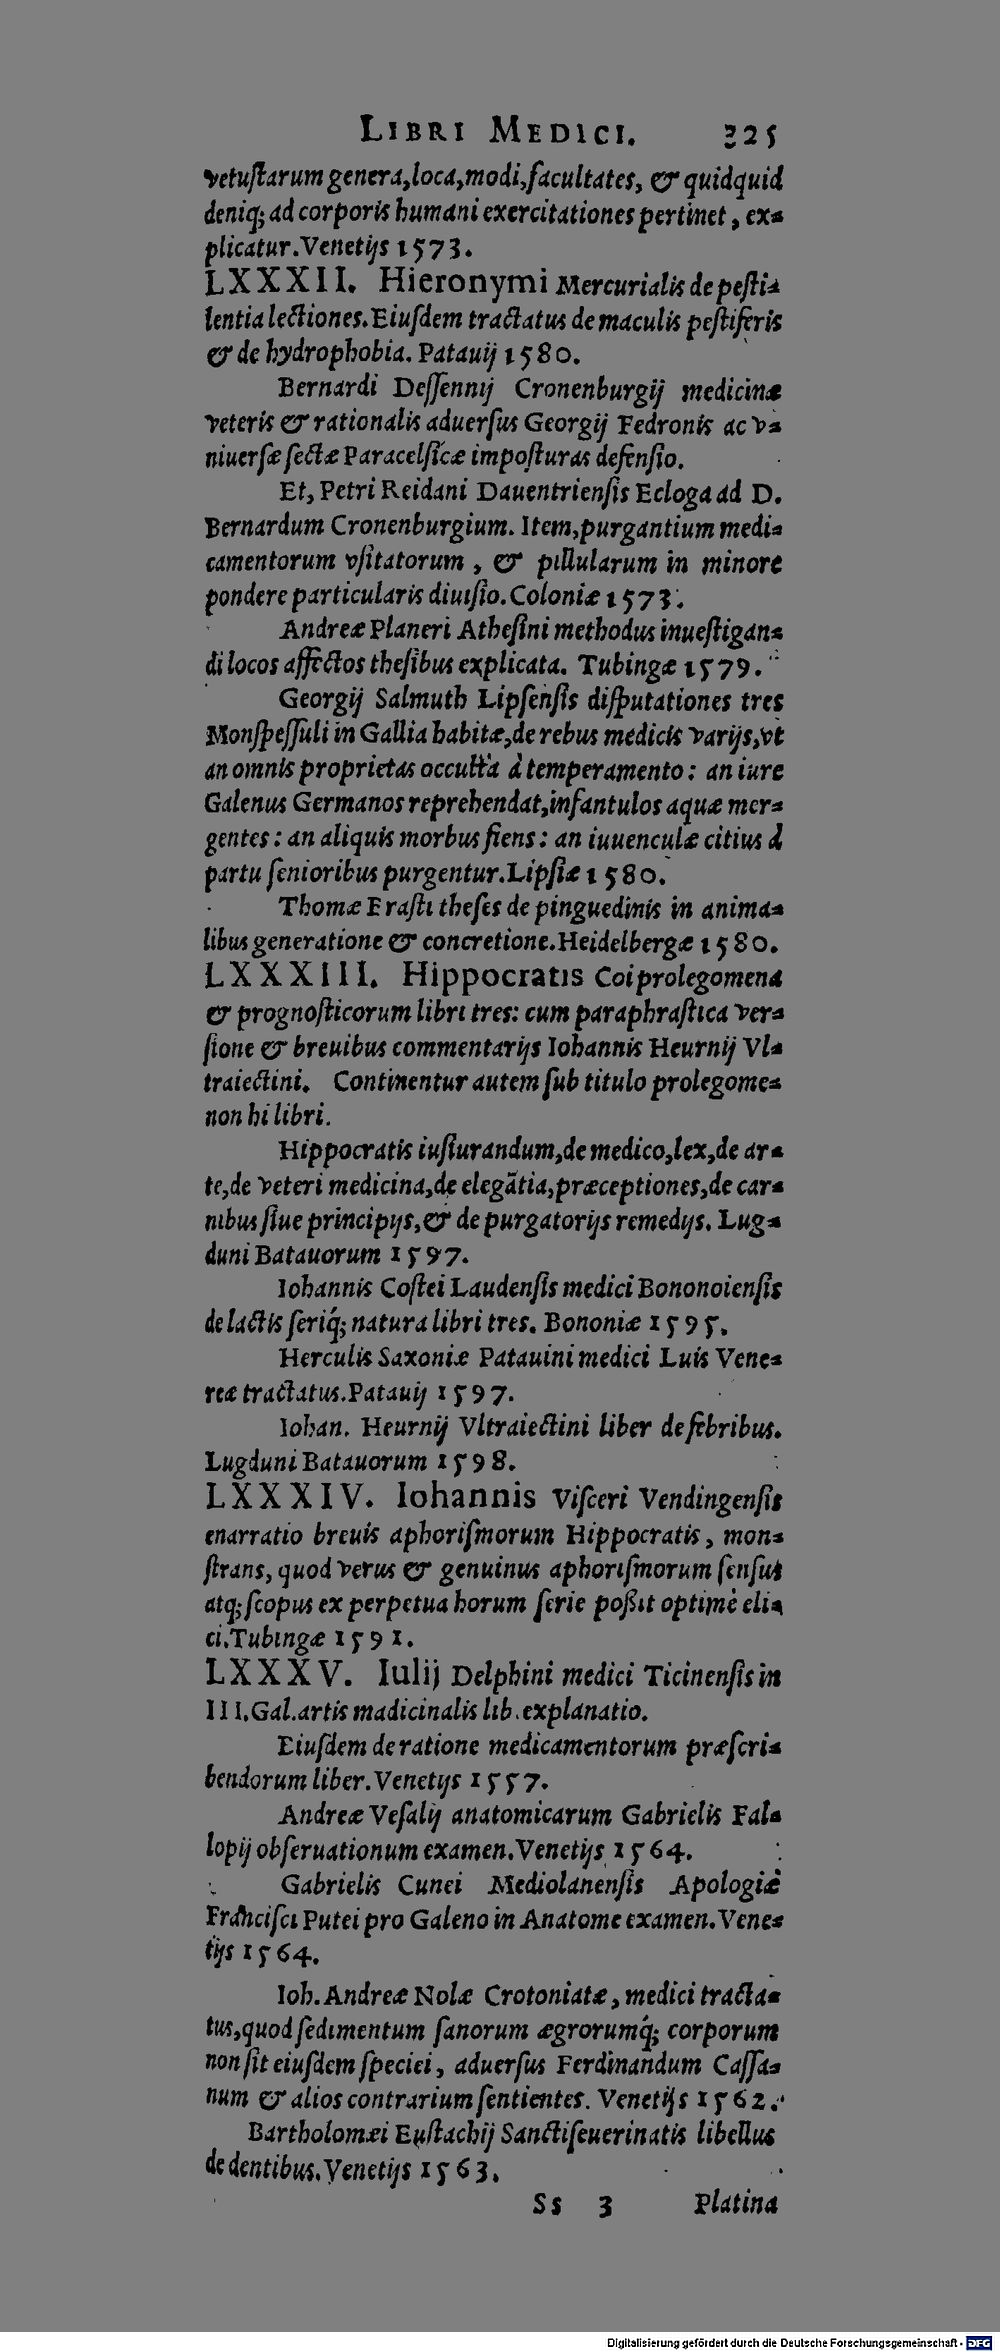 LIBRI MEDICI. 325
vetuſtarum genera, loca, modi, facultates, & quidquid
deniq; ad corporis humani exercitationes pertinet, ex-
plicatur. Venetijs 1573.
LXXXII. Hieronymi Mercurialis de peſti-
lentia lectiones. Eiuſdem tractatus de maculis peſtiferis
& de hydrophobia. Patauij 1580.
Bernardi Deſſennij Cronenburgij medicinæ
veteris & rationalis aduerſus Georgij Fedronis ac v-
niuerſæ ſectæ Paracelſicæ impoſturas defenſio.
Et, Petri Reidani Dauentrienſis Ecloga ad D.
Bernardum Cronenburgium. Item, purgantium medi-
camentorum vſitatorum, & pillularum in minore
pondere particularis diuiſio. Coloniæ 1573.
Andreæ Planeri Atheſini methodus inueſtigan-
di locos affectos theſibus explicata. Tubingæ 1579.
Georgij Salmuth Lipſenſis diſputationes tres
Monſpeſſuli in Gallia habitæ, de rebus medicis varijs, vt
an omnis proprietas occulta à temperamento: an iure
Galenus Germanos reprehendat, infantulos aquæ mer-
gentes: an aliquis morbus fiens: an iuuenculæ citius à
partu ſenioribus purgentur. Lipſiæ 1580.
Thomæ Eraſti theſes de pinguedinis in anima-
libus generatione & concretione. Heidelbergæ 1580.
LXXXIII. Hippocratis Coi prolegomena
& prognoſticorum libri tres: cum paraphraſtica ver-
ſione & breuibus commentarijs Iohannis Heurnij Vl-
traiectini. Continentur autem ſub titulo prolegome-
non hi libri.
Hippocratis iuſiurandum, de medico, lex, de ar-
te, de veteri medicina, de elegãtia, præceptiones, de car-
nibus ſiue principijs, & de purgatorijs remedijs. Lug-
duni Batauorum 1597.
Iohannis Coſtei Laudenſis medici Bononoienſis
de lactis ſeriq́; natura libri tres. Bononiæ 1595.
Herculis Saxoniæ Patauini medici Luis Vene-
reæ tractatus. Patauij 1597.
Iohan. Heurnij Vltraiectini liber de febribus.
Lugduni Batauorum 1598.
LXXXIV. Iohannis Viſceri Vendingenſis
enarratio breuis aphoriſmorum Hippocratis, mon-
ſtrans, quod verus & genuinus aphoriſmorum ſenſus
atq; ſcopus ex perpetua horum ſerie poßit optimè eli-
ci. Tubingæ 1591.
LXXXV. Iulij Delphini medici Ticinenſis in
III. Gal. artis madicinalis lib. explanatio.
Eiuſdem de ratione medicamentorum præſcri-
bendorum liber. Venetijs 1557.
Andreæ Veſalij anatomicarum Gabrielis Fal-
lopij obſeruationum examen. Venetijs 1564.
Gabrielis Cunei Mediolanenſis Apologiæ
Franciſci Putei pro Galeno in Anatome examen. Vene-
tijs 1564.
Ioh. Andreæ Nolæ Crotoniatæ, medici tracta-
tus, quod ſedimentum ſanorum ægrorumq́; corporum
non ſit eiuſdem ſpeciei, aduerſus Ferdinandum Caſſa-
num & alios contrarium ſentientes. Venetijs 1562.
Bartholomæi Euſtachij Sanctiſeuerinatis libellus
de dentibus. Venetijs 1563.
Ss 3 Platina
Digitalisierung gefördert durch die Deutsche Forschungsgemeinschaft - DFG